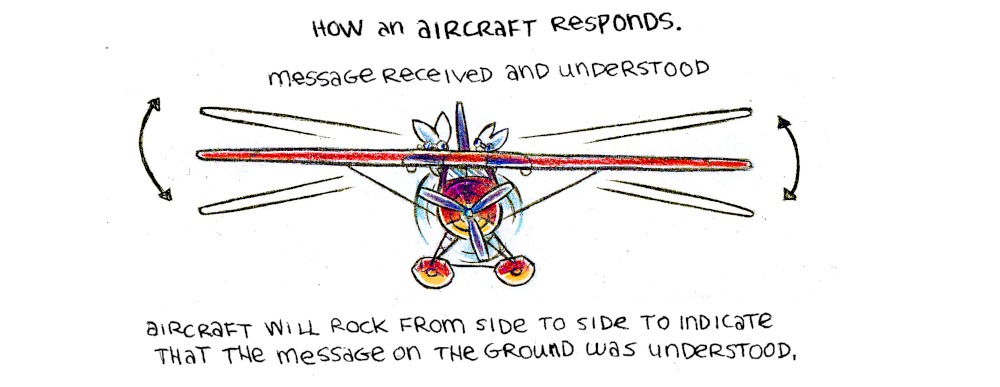 HOW an aIRCRaFT ResPONDS.
messaGe ReceIVeD anD unDeRSTOOD
aIRCRaFT WILL ROCK FROM SIDe TO SIDe TO InDICaTe
THaT THe messaGe on THe GROUND was unDeRSTOOD.